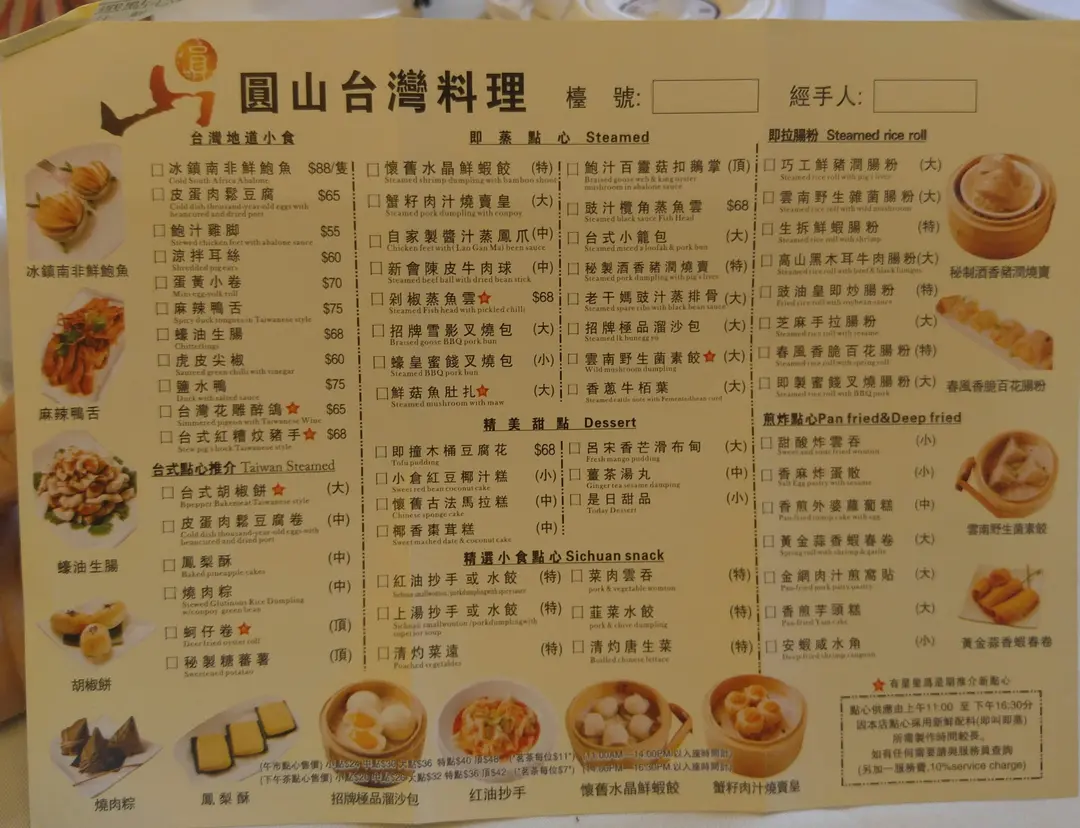 圓山台灣料理
檯 號:
經手人:
台灣地道小食
冰鎮南非鮮鮑魚 $88/隻
Cold South Africa Abalone
皮蛋肉鬆豆腐 $65
Cold dish thousand-year-old eggs with
beancured and dried porc
鮑汁雞脚 $55
Stewed chicken feet with abalone sauce
涼拌耳絲 $60
Shredded pig ears
蛋黃小卷 $70
麻辣鴨舌 $75
Spicy duck tongues in Taiwanese style
蠔油生腸 $68
Chitterlings
虎皮尖椒 $60
Sauteed green chilli with vinegar
鹽水鴨 $75
Duck with salted sauce
台灣花雕醉鴿 $65
Simmered pigeon with Taiwanese Wine
台式紅糟炆豬手 $68
台式點心推介 Taiwan Steamed
台式胡椒餅 (大)
皮蛋肉鬆豆腐卷 (中)
Cold dish thousand-year-old eggs with
beancured and dried porc
鳳梨酥 (中)
Baked pineapple cakes
燒肉粽 (中)
Stewed Glutinous Rice Dumpling
w/conpoy green bean
蚵仔卷 (頂)
Deer fried oyster roll
秘製糖蕃薯 (頂)
Sweetened potatoes
即蒸點心 Steamed
懷舊水晶鮮蝦餃 (特)
Steamed shrimp dumpling with bamboo shoot
蟹籽肉汁燒賣皇 (大)
Steamed pork dumpling with conpoy
自家製醬汁蒸鳳爪 (中)
Chicken feet with Lao Gan Mai been sauce
新會陳皮牛肉球 (中)
Steamed beef ball with dried bean stick
剁椒蒸魚雲 $68
Steamed Fish head with pickled chilli
招牌雪影叉燒包 (大)
Braised goose BBQ pork bun
蠔皇蜜餞叉燒包 (小)
Steamed BBQ pork bun
鮮菇魚肚扎 (大)
Steamed mushroom with maw
鮑汁百靈菇扣鵝掌 (頂)
Braised goose web & kang oyster
mushroom in abalone sauce
豉汁欖角蒸魚雲 $68
Steamed black sauce Fish Head
台式小籠包 (大)
秘製酒香豬潤燒賣 (特)
老干媽豉汁蒸排骨 (大)
Steamed spare ribs with black bean sauce
招牌極品溜沙包 (大)
雲南野生菌素餃 (大)
Wild mushroom dumpling
香蔥牛栢葉 (大)
精美甜點 Dessert
即撞木桶豆腐花 $68
Tofu pudding
小倉紅豆椰汁糕 (小)
Sweet red bean coconut cake
懷舊古法馬拉糕 (中)
Chinese sponge cake
椰香棗茸糕 (中)
Sweet mashed date & coconut cake
呂宋香芒滑布甸 (大)
Fresh mango pudding
薑茶湯丸 (中)
Ginger tea sesame dumping
是日甜品 (小)
Today Dessert
精選小食點心 Sichuan snack
紅油抄手或水餃 (特)
上湯抄手或水餃 (特)
superior soup
清灼菜遠 (特)
Poached vegetables
菜肉雲吞 (特)
pork & vegetable wonton
韮菜水餃 (特)
pork & chive dumpling
清灼唐生菜 (特)
Boiled chinese lettuce
即拉腸粉 Steamed rice roll
巧工鮮豬潤腸粉 (大)
Steamed rice roll with pig's liver
雲南野生雜菌腸粉 (大)
Steamed rice roll with wild mushroom
生拆鮮蝦腸粉 (特)
Steamed rice roll with shrimp
高山黑木耳牛肉腸粉 (大)
Steamed rice roll with beef & black fungus
豉油皇即炒腸粉 (特)
Fried rice roll with soybean sauce
芝麻手拉腸粉 (大)
Steamed rice roll with sesame
春風香脆百花腸粉 (特)
Steamed rice roll with spring roll
即製蜜餞叉燒腸粉 (大)
Steamed rice roll with BBQ pork
煎炸點心Pan fried&Deep fried
甜酸炸雲吞 (小)
Sweet and sour fried wonton
香麻炸蛋散 (小)
Salt Egg pastry with sesame
香煎外婆蘿蔔糕 (中)
Pan-fried turnip cake with egg
黃金蒜香蝦春卷 (大)
Spring roll with shrimp & garlic
金網肉汁煎窩貼 (大)
香煎芋頭糕 (大)
Pan-fried Yam cake
安蝦咸水角 (小)
冰鎮南非鮮鮑魚
麻辣鴨舌
蠔油生腸
胡椒餅
燒肉粽
鳳梨酥
招牌極品溜沙包
红油抄手
懷舊水晶鮮蝦餃
蟹籽肉汁燒賣皇
秘制酒香豬潤燒賣
春風香脆百花腸粉
雲南野生菌素餃
黃金蒜香蝦春卷
有星星爲星期推介新點心
點心供應由上午11:00 至 下午16:30分
因本店點心採用新鮮配料(即叫即蒸)
所需製作時間較長。
如有任何需要請與服務員查詢
(另加一服務費,10%service charge)